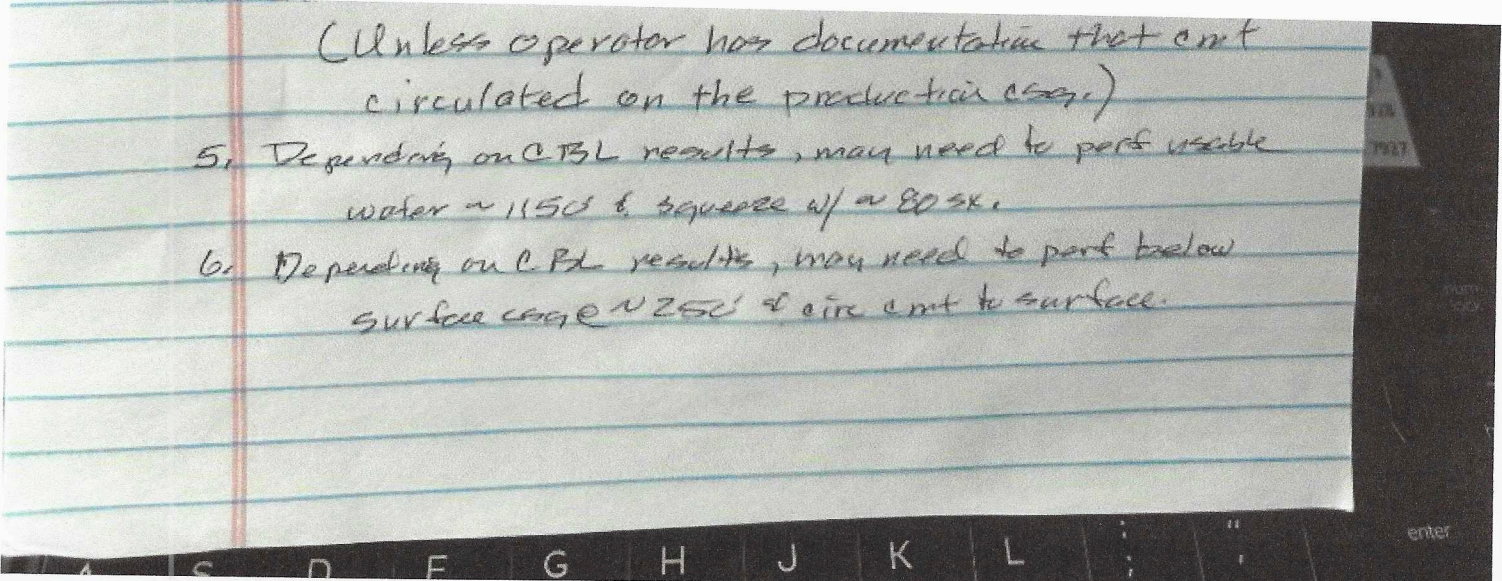 (Unless operator has documentation that cmt
circulated on the production csg.)
5. Depending on CBL results, may need to perf usable
water ~ 1150' & squeeze w/ ~ 80 sx.
6. Depending on CBL results, may need to perf below
surface csg @ ~ 250' & circ cmt to surface.
7927
enter
A S D F G H J K L : ; " '